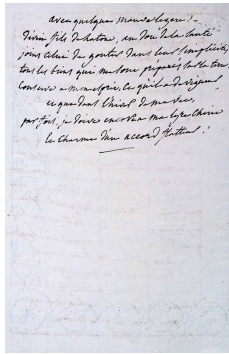 avec quelque mauve légère !..
divin fils de Latone, au don de la santé
joins celui de gouter dans leur simplicité,
tous les biens que me sont préparés sur la terre.
Conserve a mon esprit ce qu'il a de vigueur
et que dans l'hiver de ma vie,
par fois, je doive encor à ma lyre chérie
le charme d'un accord flatteur !